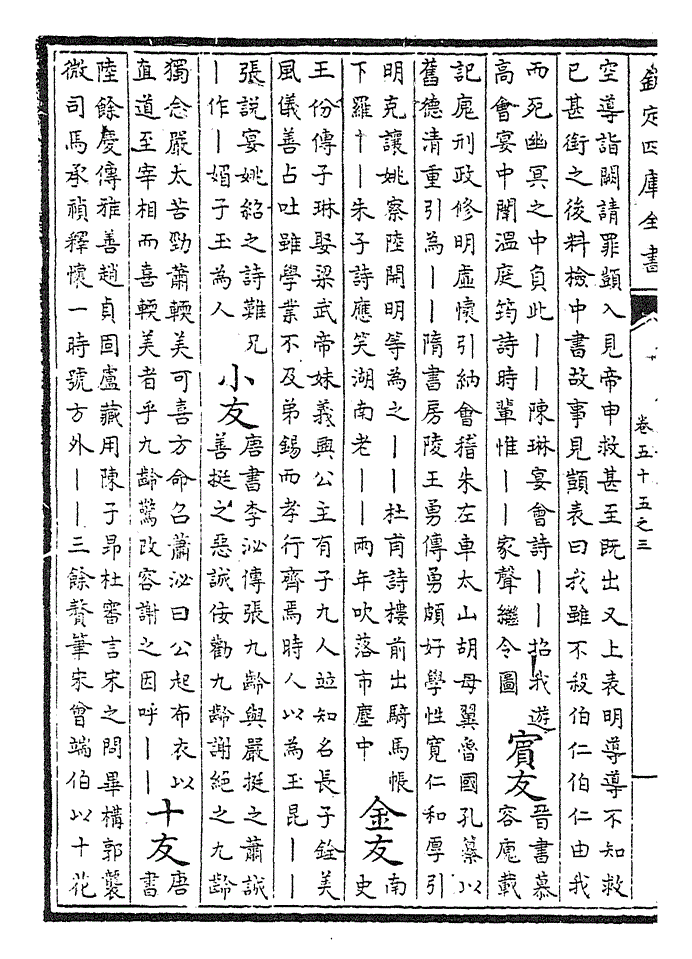 欽定四庫全書
卷五十五之三
空導詣闕請罪顗入見帝申救甚至既出又上表明導導不知救
已甚銜之後料檢中書故事見顗表曰我雖不殺伯仁伯仁由我
而死幽冥之中負此丨丨陳琳宴會詩丨丨招我遊
高會宴中闈温庭筠詩時輩惟丨丨家聲繼令圖
賓友
晉書慕
容廆載
記廆刑政修明虛懷引納會稽朱左車太山胡母翼魯國孔纂以
舊德清重引為丨丨隋書房陵王勇傳勇頗好學性寬仁和厚引
明克讓姚察陸開明等為之丨丨杜甫詩樓前出騎馬帳
下羅丨丨朱子詩應笑湖南老丨丨兩年吹落市塵中
金友
南
史
王份傳子琳娶梁武帝妹義興公主有子九人竝知名長子銓美
風儀善占吐雖學業不及弟錫而孝行齊焉時人以為玉昆丨丨
張說宴姚紹之詩難兄
丨作丨媚子玉為人
小友
唐書李泌傳張九齡與嚴挺之蕭誠
善挺之惡誠佞勸九齡謝絶之九齡
獨念嚴太苦勁蕭輭美可喜方命召蕭泌曰公起布衣以
直道至宰相而喜輭美者乎九齡驚改容謝之因呼丨丨
十友
唐
書
陸餘慶傳雅善趙貞固盧藏用陳子昂杜審言宋之問畢構郭襲
微司馬承禎釋懷一時號方外丨丨三餘贅筆宋曾端伯以十花